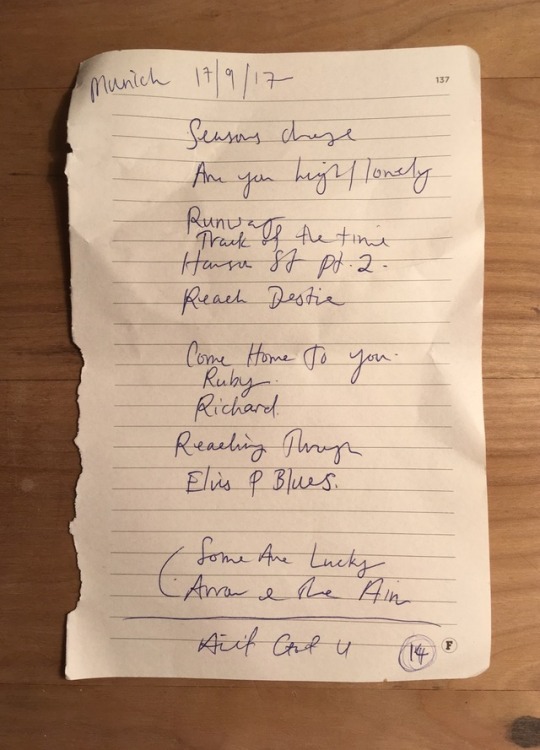 Munich 17/9/17
137
Seasons change
Are you high/lonely
Runway
Track of the time
Hansa St pt. 2.
Reach
Come Home To you.
Ruby.
Richard.
Reaching Through
Elvis P Blues.
Some Are Lucky
Arrow & the Aim
Ain't Got U
14
F